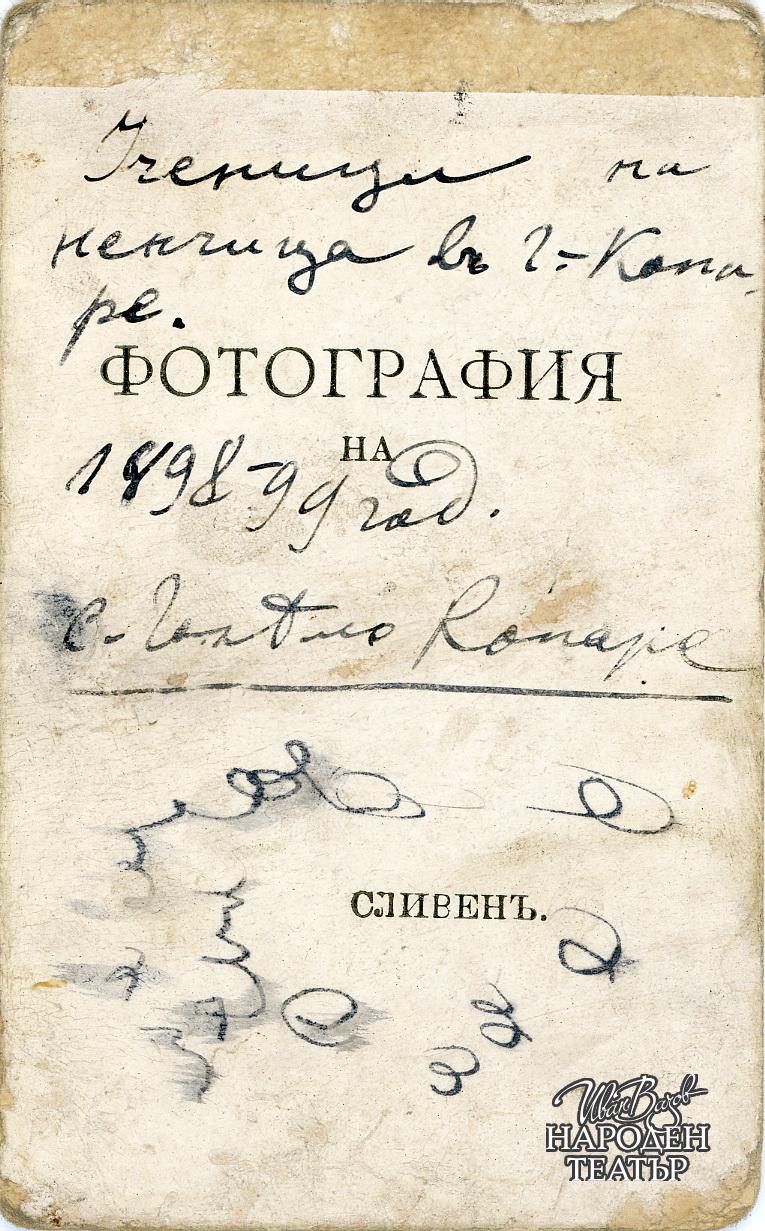 Ученици на
ненчица въ г-Копа-
ре.
ФОТОГРАФИЯ
НА
1898-99 год.
с. Голѣмо Копаре
СЛИВЕНЪ.
Иван Вазов
НАРОДЕН
ТЕАТЪР